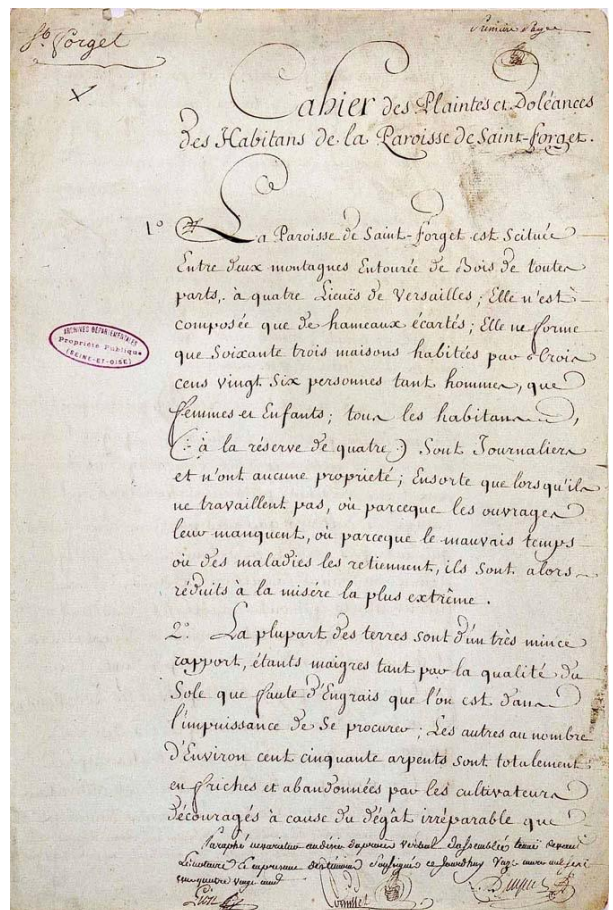 St. Forget
Premiere Page
Cahier des Plaintes et Doléances
des Habitans de la Paroisse de Saint-forget.
1° La Paroisse de Saint-forget est scituée
Entre deux montagnes Entourée de Bois de toutes
parts, à quatre Lieuës de Versailles; Elle n'est
composée que de hameaux écartés; Elle ne forme
que Soixante trois maisons habitées par Trois
cens vingt Six personnes tant hommes, que
femmes et Enfants; tous les habitans,
(à la réserve de quatre) Sont Journaliers
et n'ont aucune proprieté; Ensorte que lorsqu'ils
ne travaillent pas, où parceque les ouvrages
leur manquent, où parceque le mauvais temps
où des maladies les retiennent, ils sont alors
réduits à la misére la plus extrême.
2° La plupart des terres sont d'un très mince
rapport, étants maigres tant par la qualité du
Sole que faute d'Engrais que l'on est dans
l'impuissance de se procurer; Les autres au nombre
d'Environ cent cinquante arpents sont totalement
en friches et abandonnées par les cultivateurs
découragés à cause du dégât irréparable que
ARCHIVES DÉPARTEMENTALES
Propriété Publique
(SEINE-ET-OISE)
Paraphé
quatre vingt neuf